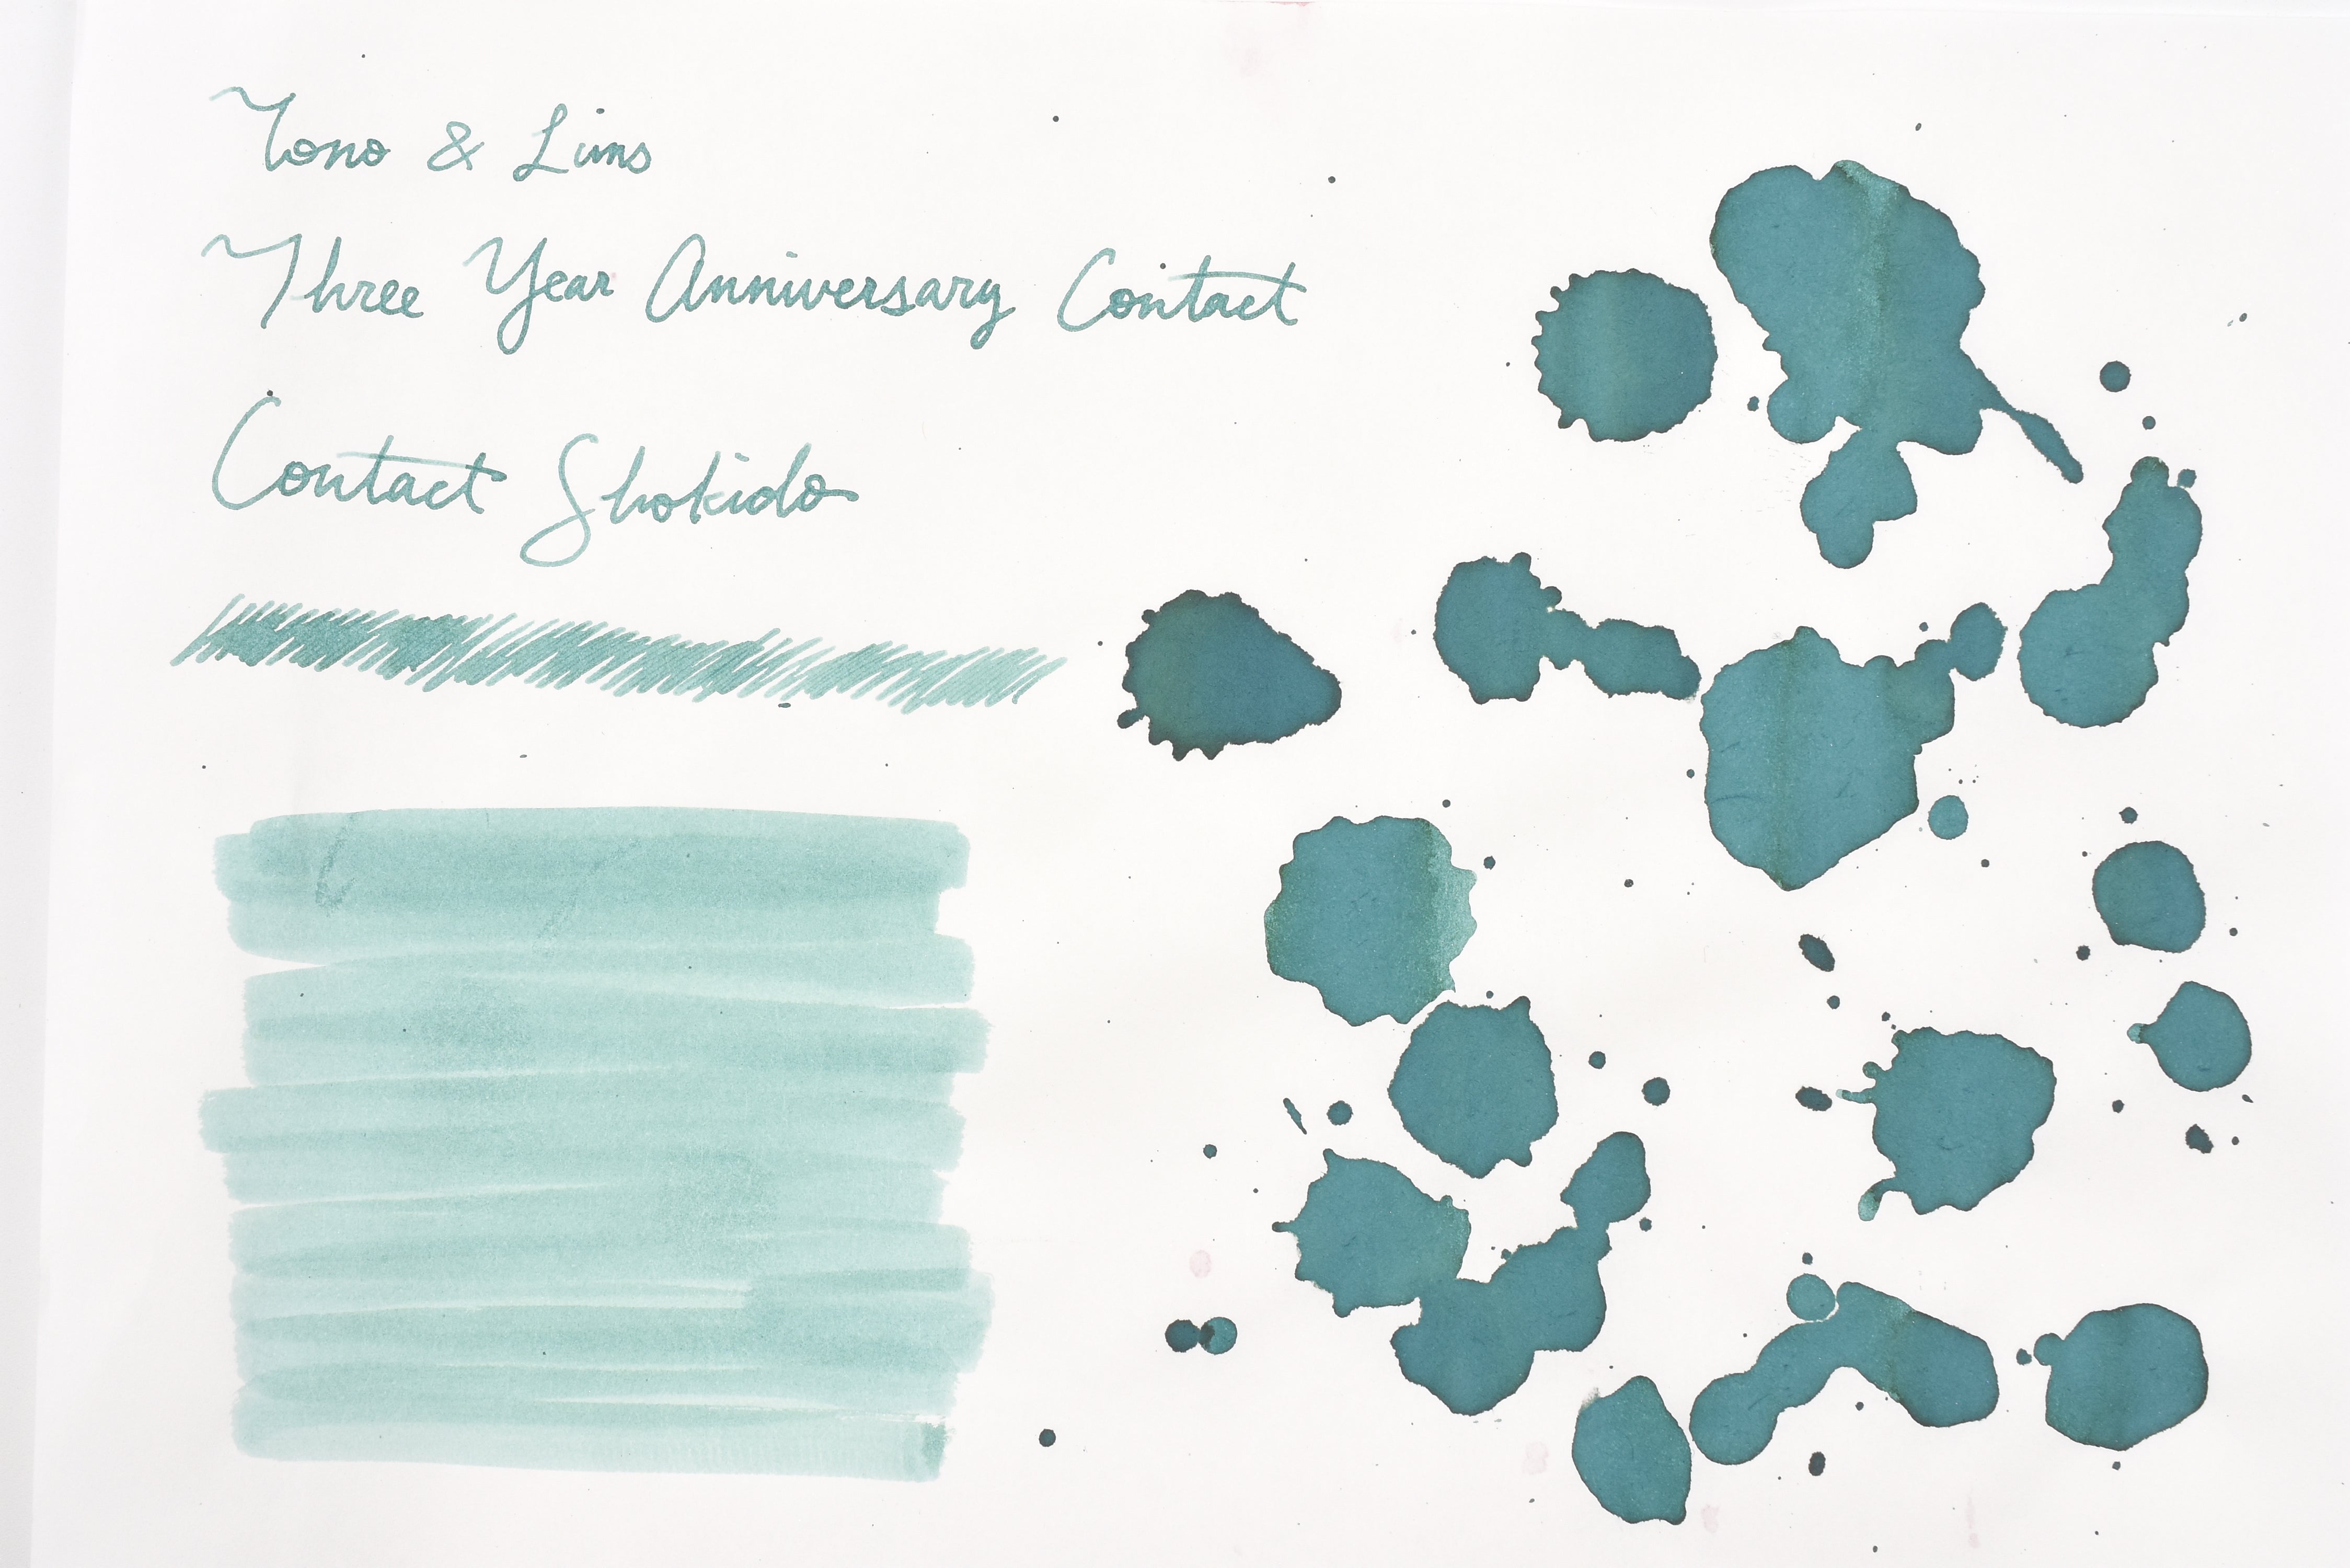 Tono & Lims
Three Year Anniversary Contact
Contact Shokido